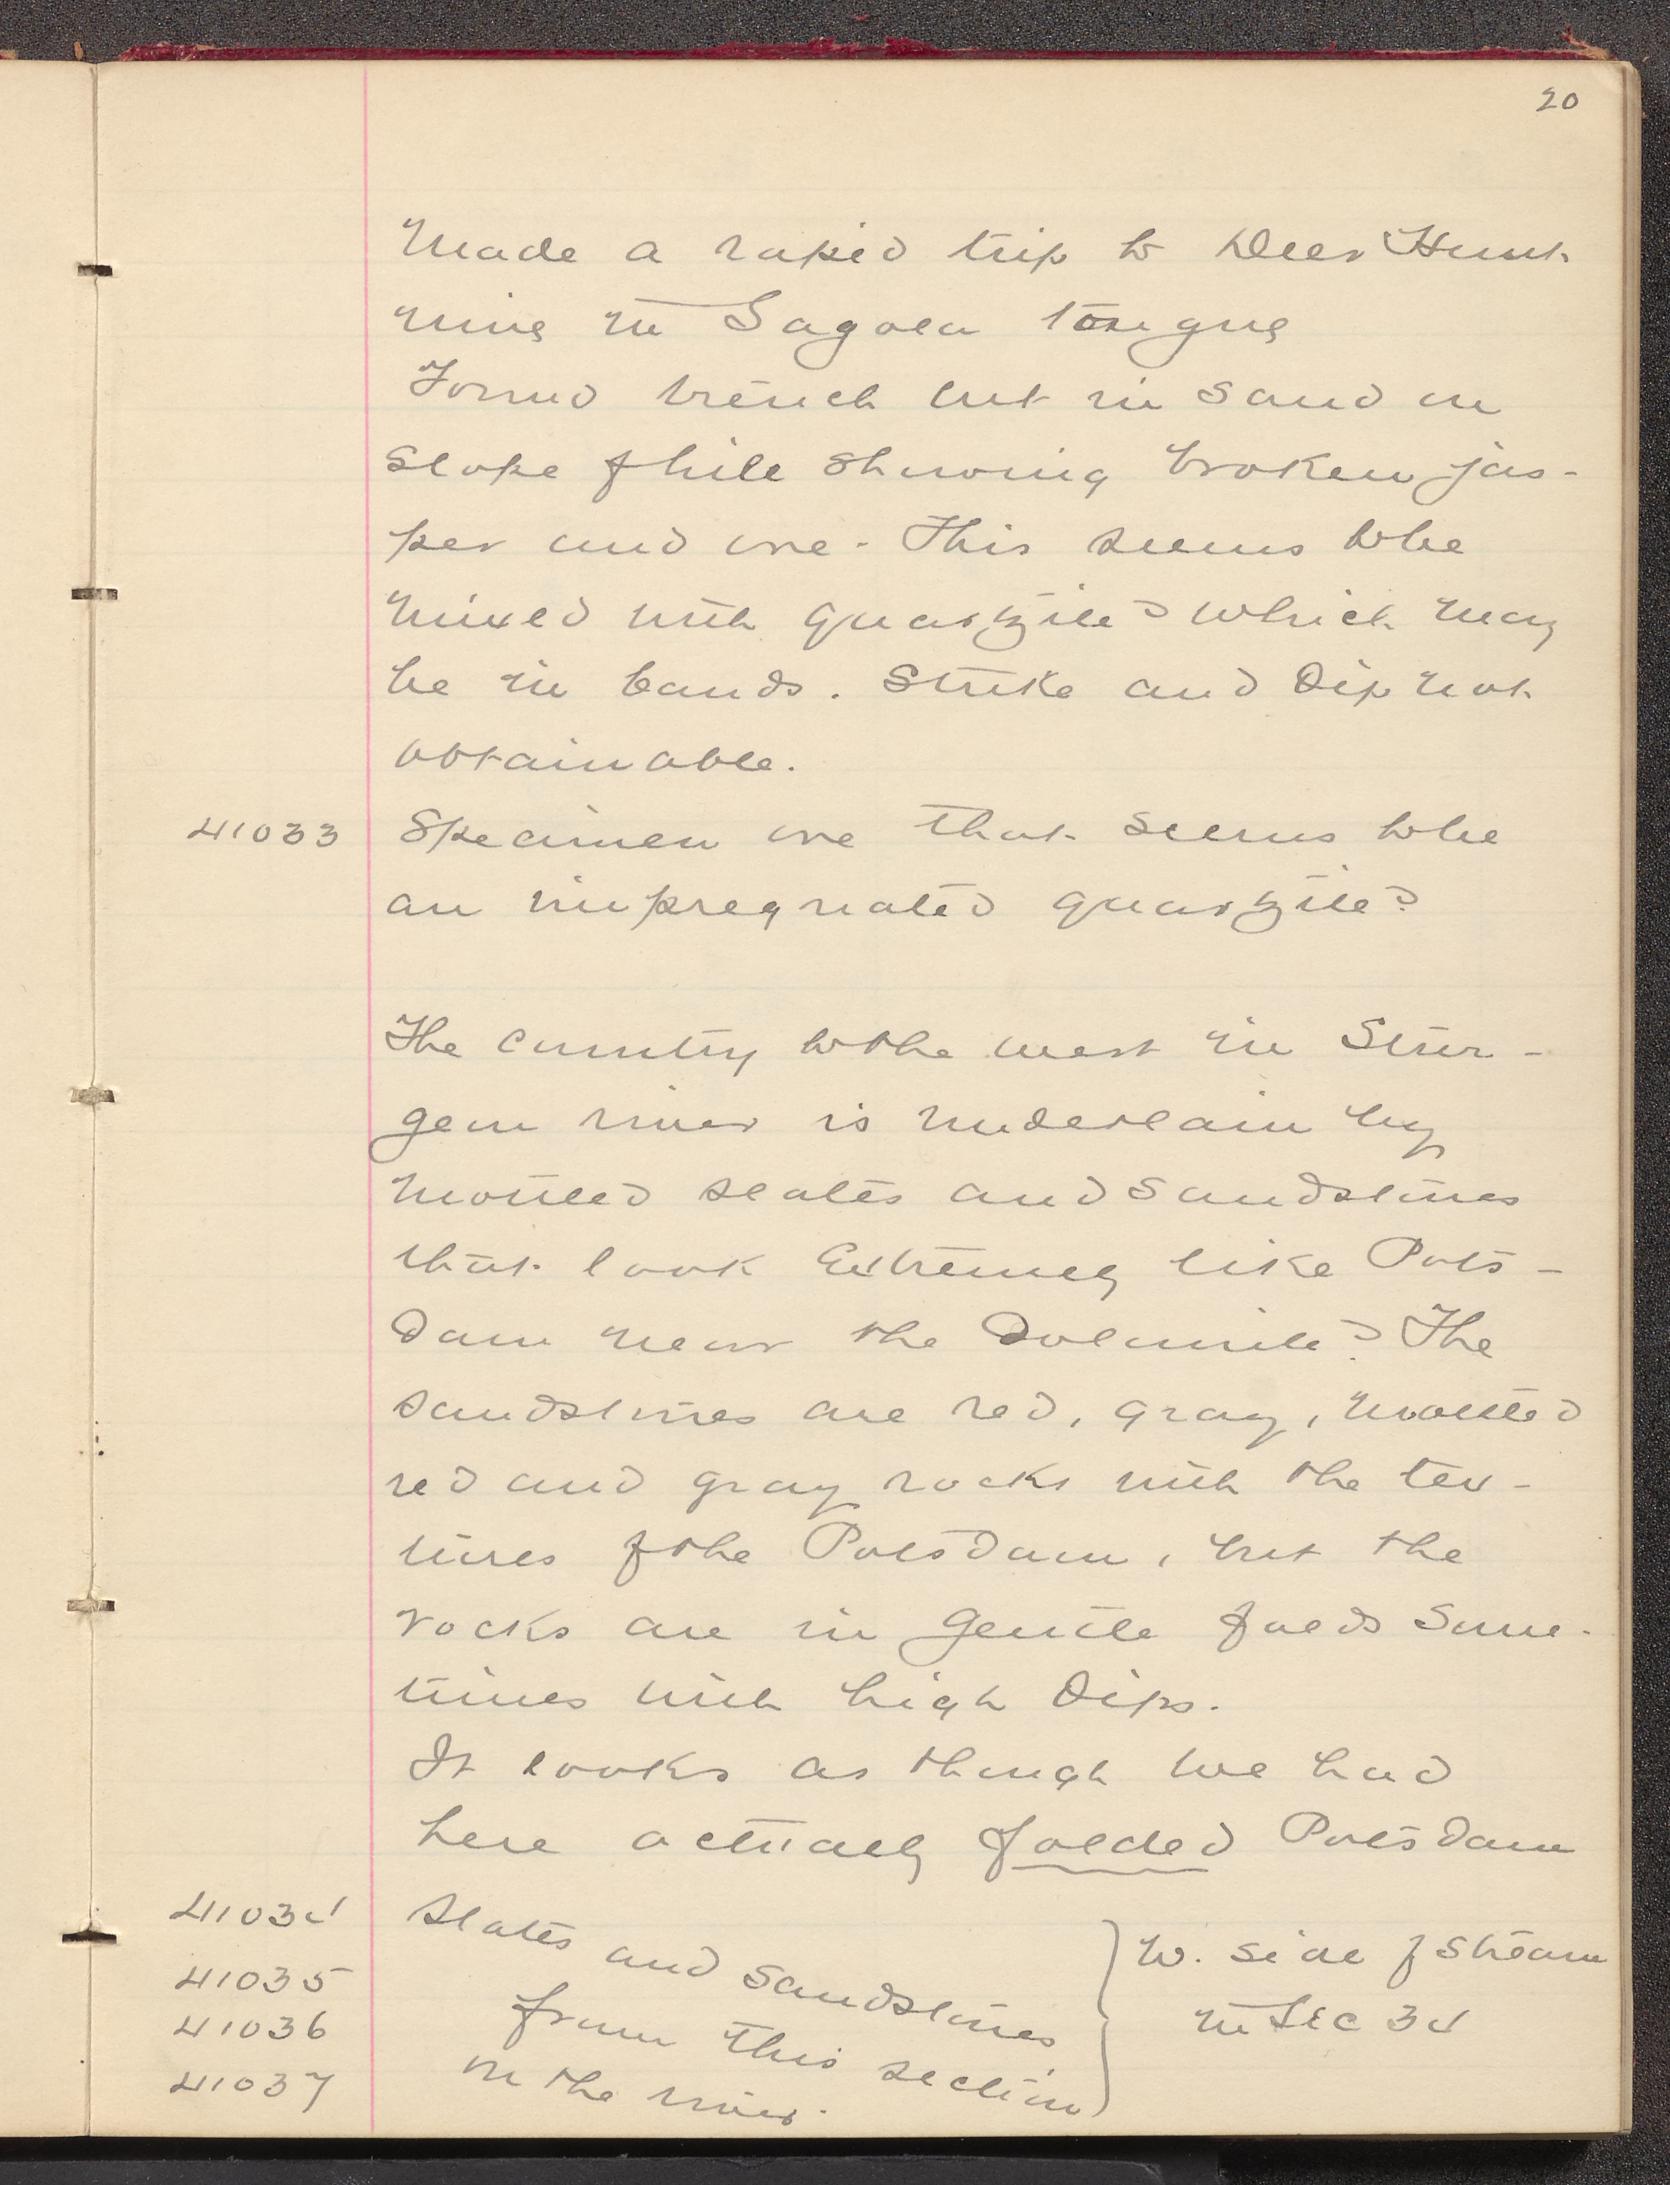 20
Made a rapid trip to Deer Hunt
mine in Sagola tongue
Found trench cut in sand on
slope of hill showing broken jas-
per and ore. This seems to be
mixed with quartzite? which may
be in bands. Strike and Dip not
obtainable.
41033 Specimen ore that seems to be
an impregnated quartzite?
The country to the west in Stur-
geon river is underlain by
mottled slates and sandstones
that look extremely like Pots-
dam near the Dolomite? The
sandstones are red, gray, mottled
red and gray rocks with the tex-
tures of the Potsdam, but the
rocks are in gentle folds some-
times with high Dips.
It looks as though we had
here actually folded Potsdam
41034 Slates and sandstones
41035 from this section
41036 on the river.
41037
W. side of stream
in Sec 34